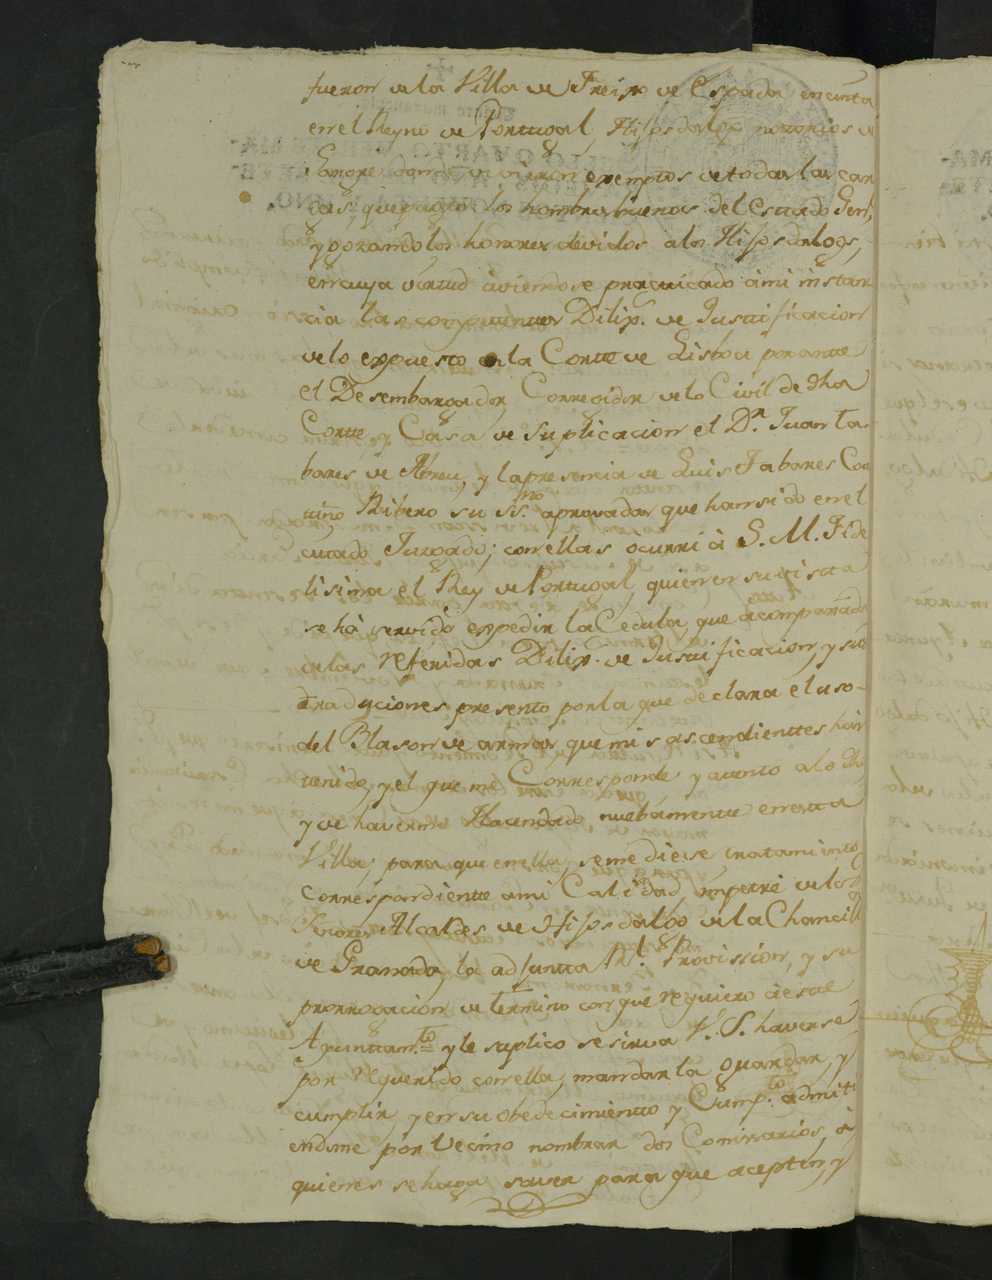 fueron de la Villa de Freixo de Espada encinta
en el Reyno de Portugal, Hijosdalgo notorios de
Sangre, como exemptos de todas las car
gas, que pagan los hombres buenos del Estado Genl,
y gozando los honores devidos a los Hijosdalgos,
en cuya virtud aviendose practicado à mi instan
cia las competentes Dilix.s de Justificacion
de lo expuesto en la Corte de Lisboa por ante
el Desembargador Corregidor de lo Civil de dha
Corte, y Casa de Suplicacion el D.n Juan Ta
bares de Abreu, y la presencia de Luis Tabares Co
utiño Ribero su ss.no aprovadas que han sido en el
citado Juzgado; con ellas ocurri à S. M. Fide
lisima el Rey de Portugal, quien en su vista
se hà servido expedir la Cedula que acompañada
de las referidas Dilix.s de Justificacion, y sus
traduciones presento por la que declara el uso
del Blason de armas que mis ascendientes han
tenido, y el que me Corresponde, y atento a lo dho
y de haverme Hacendado nuebamente en esta
Villa, para que en ella se me diese tratamiento
correspondiente a mi Calidad impetrè de los
Señores Alcaldes de Hijosdalgo de la Chancill.a
de Granada, la adjunta R.l Provission, y su
prorrogacion de termino con que requiero à este
Ayuntam.to y le suplico se sirva V. S. haverse
por requerido con ella, mandarla guardar, y
cumplir, y en su obedecimiento y Cump.to admiti
endome por Vecino nombrar dos Comissarios, à
quienes se haga saver para que acepten, y